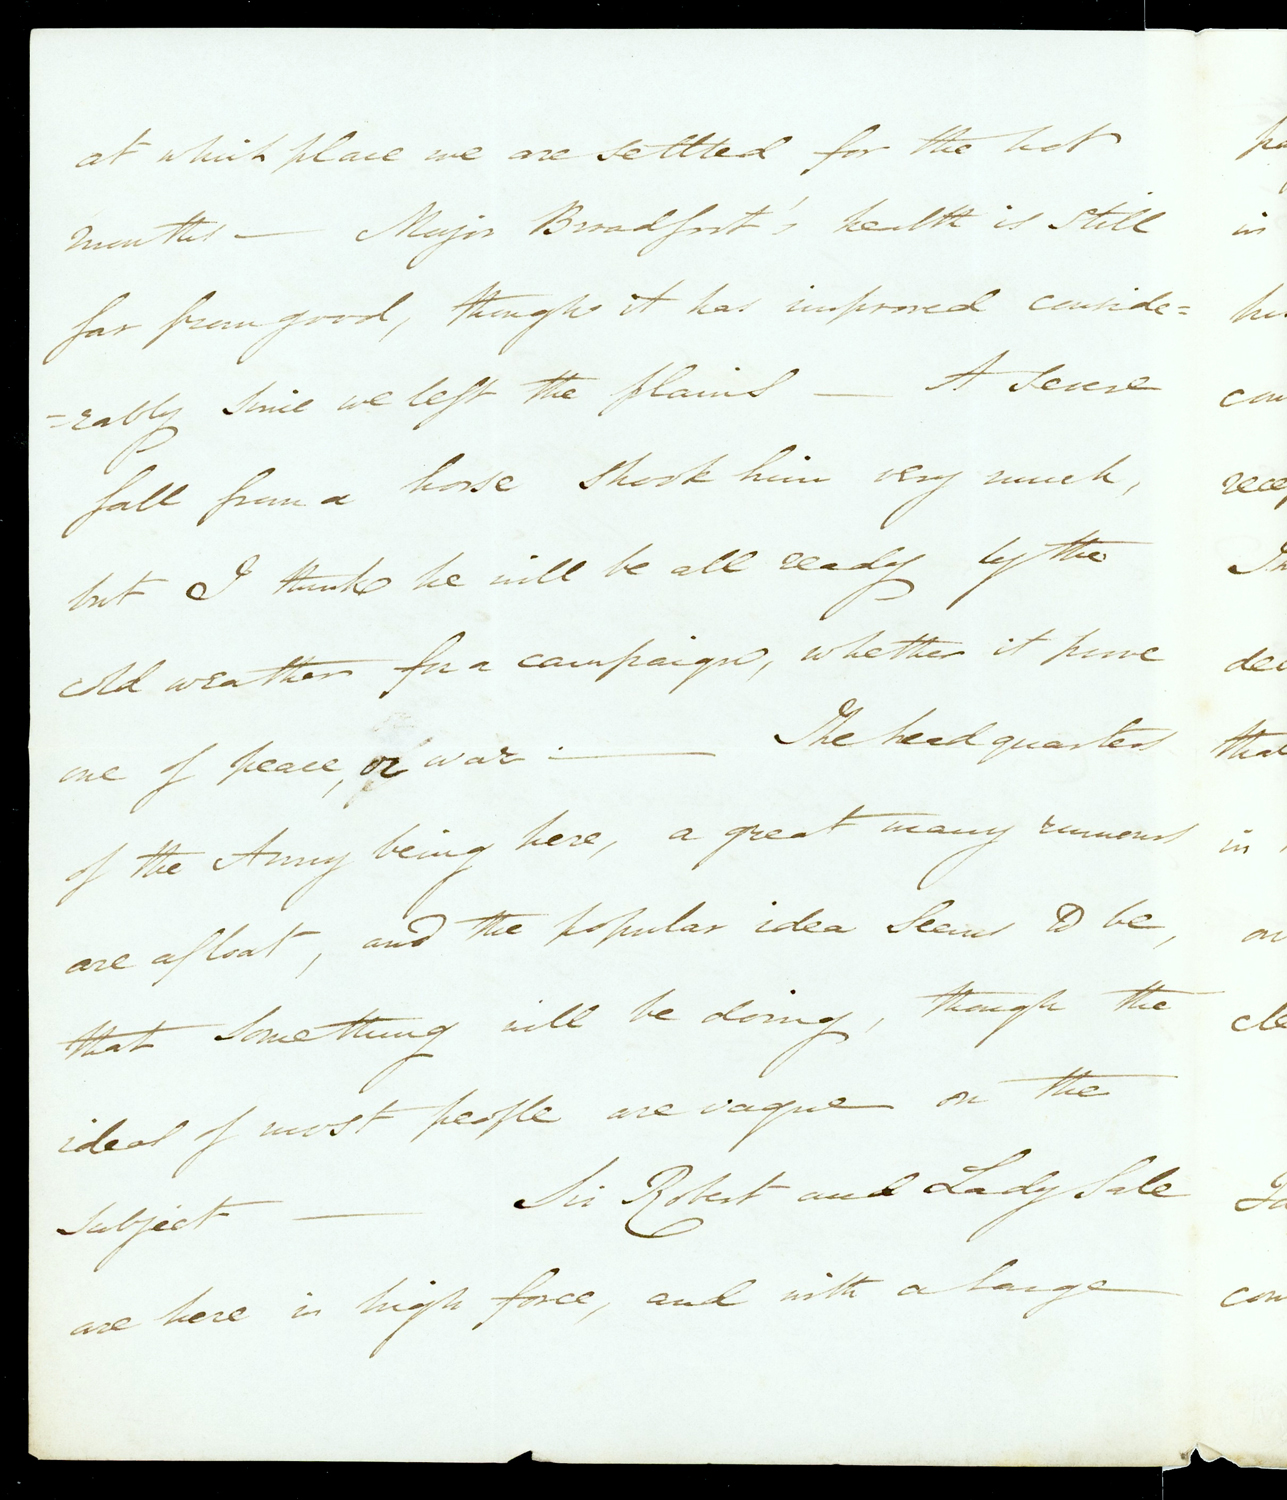 at which place we are settled for the hot
months — Major Broadfoot's health is still
far from good, though it has improved conside=
=rably since we left the plains — A severe
fall from a horse shook him very much,
but I think he will be all ready by the
cold weather for a campaign, whether it prove
one of peace, or war :—
The head quarters
of the Army being here, a great many rumours
are afloat, and the popular idea seems to be,
that something will be doing, though the
ideas of most people are vague on the
subject —
Sir Robert and Lady Sale
are here in high force, and with a large
in
that
in